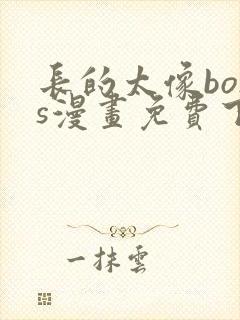 長的太像bos
s漫畫免費下
一抹雲